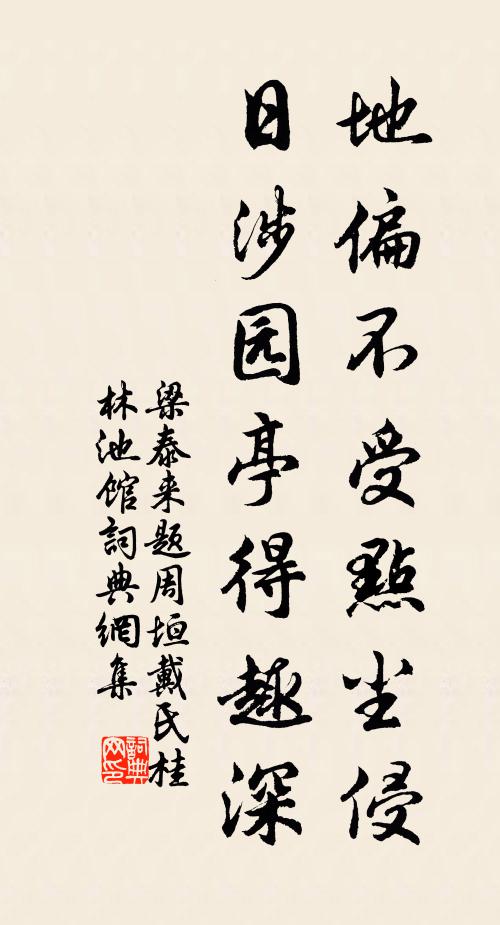 地偏不受點尘侵
日涉园亭得趣深
梁泰来题周垣戴氏桂
林池馆詞典網集
詞典网印